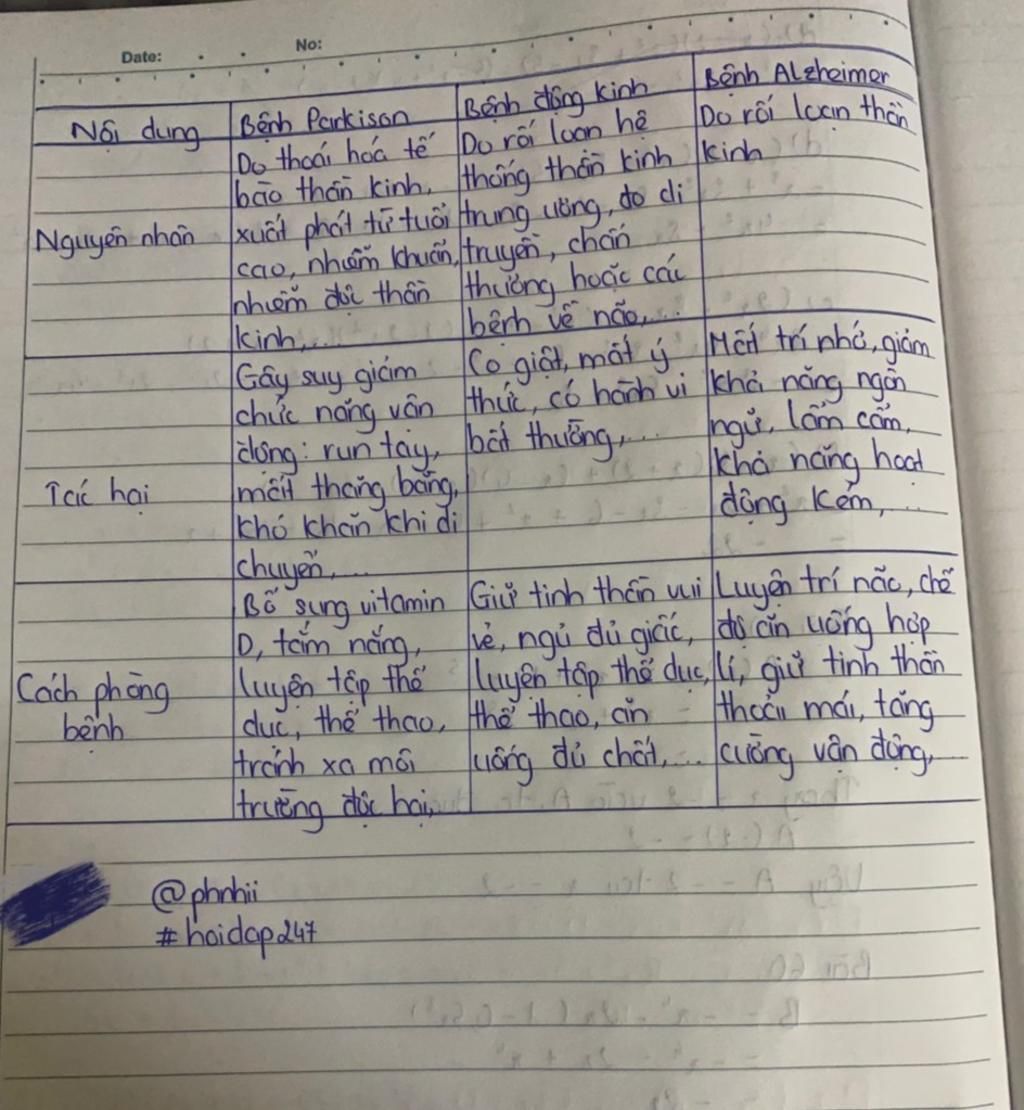 Date: No:
Nội dung
Bệnh Parkison
Bệnh động kinh
Bệnh Alzheimer
Nguyên nhân
Do thoái hoá tế
bào thần kinh,
xuất phát từ tuổi
cao, nhiễm khuẩn,
nhiễm độc thần
kinh,...
Do rối loạn hệ
thống thần kinh
trung ương, do di
truyền, chấn
thương hoặc các
bệnh về não,...
Do rối loạn thần
kinh
Tác hại
Gây suy giảm
chức năng vận
động: run tay,
mất thăng bằng,
khó khăn khi di
chuyển,...
Co giật, mất ý
thức, có hành vi
bất thường,...
Mất trí nhớ, giảm
khả năng ngôn
ngữ, lẩm cẩm,
khả năng hoạt
động kém,...
Cách phòng
bệnh
Bổ sung vitamin
D, tắm nắng,
luyện tập thể
dục, thể thao,
tránh xa môi
trường độc hại,
Giữ tinh thần vui
vẻ, ngủ đủ giấc,
luyện tập thể dục,
thể thao, ăn
uống đủ chất,...
Luyện trí não, chế
độ ăn uống hợp
lí, giữ tinh thần
thoải mái, tăng
cường vận động,
@phnhii
#hoidap247